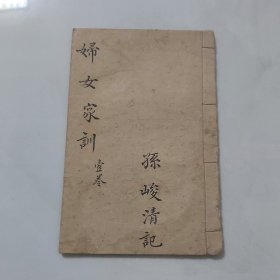 婦女家訓
壹卷
孫峻清記